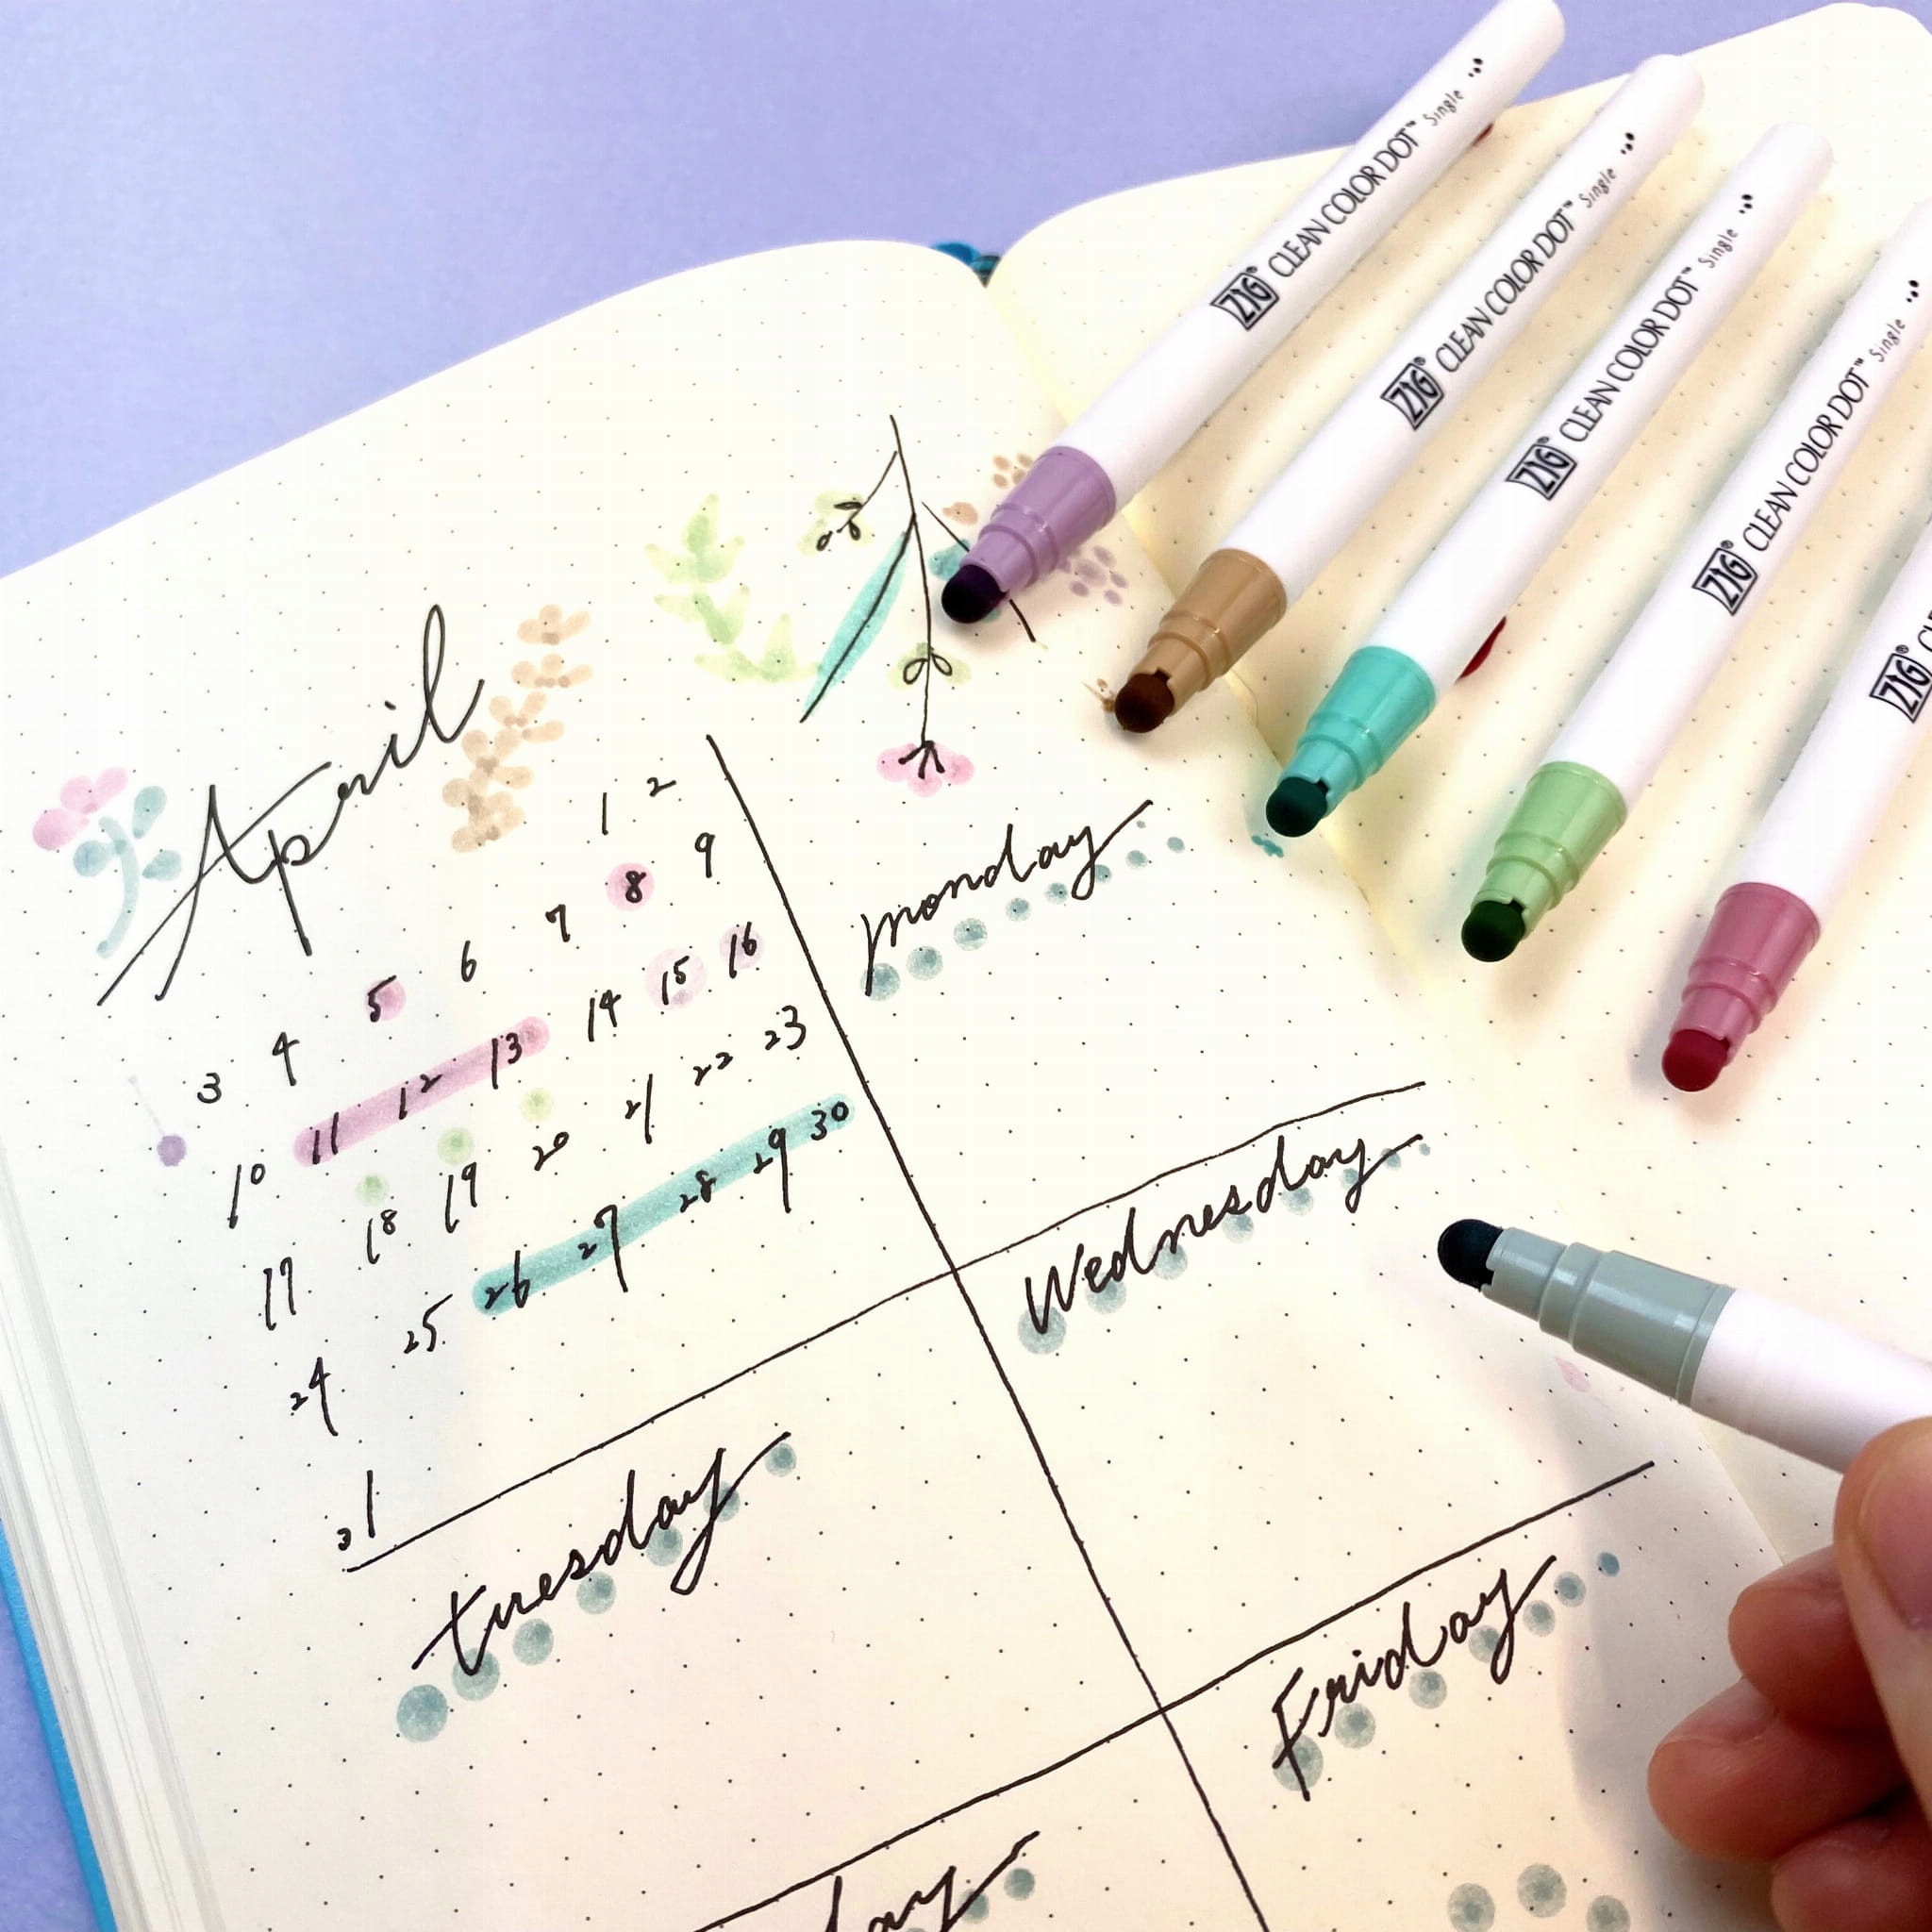 April
1 2
3 4 5 6 7 8 9
10 11 12 13 14 15 16
17 18 19 20 21 22 23
24 25 26 27 28 29 30
31
monday
Wednesday
tuesday
Friday
ZIG® CLEAN COLOR DOT™ Single
ZIG® CLEAN COLOR DOT™ Single
ZIG® CLEAN COLOR DOT™ Single
ZIG® CLEAN COLOR DOT™ Single
ZIG®